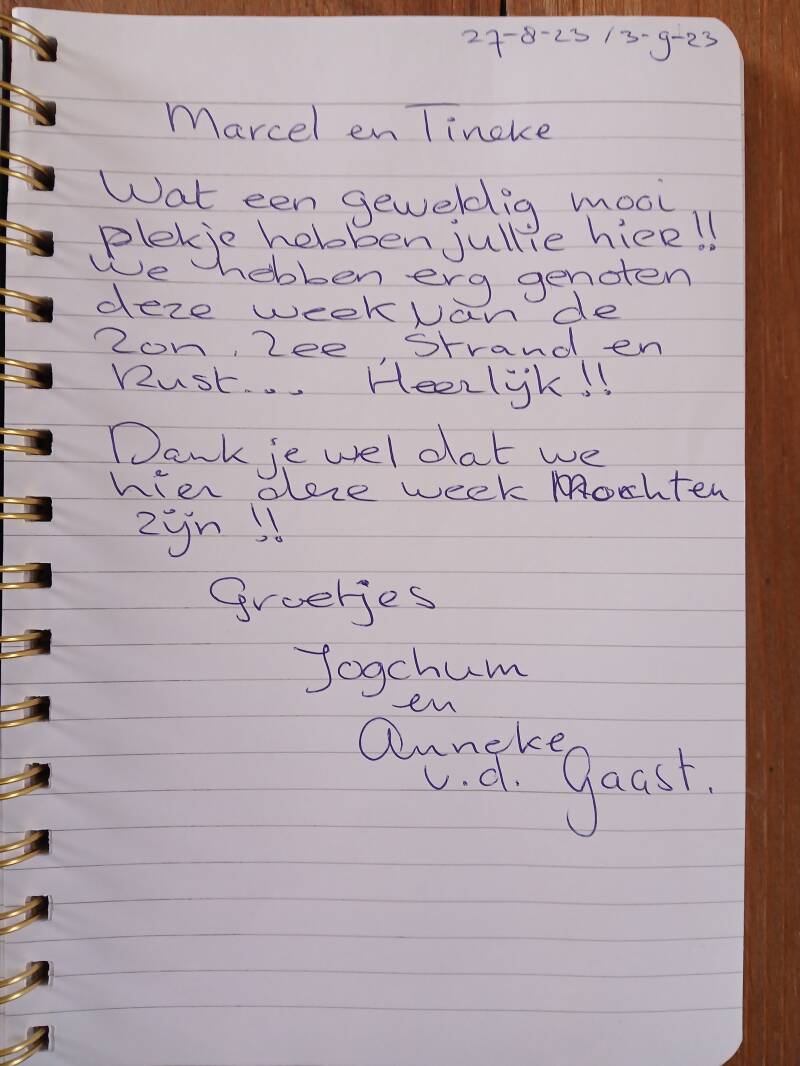 27-8-23 / 3-9-23
Marcel en Tineke
Wat een geweldig mooi
plekje hebben jullie hier!!
We hebben erg genoten
deze week van de
Zon, Zee, Strand en
Rust.... Heerlijk!!
Dank je wel dat we
hier deze week Mochten
zijn!!
Groetjes
Jogchum
en
Anneke
v.d. Gaast.